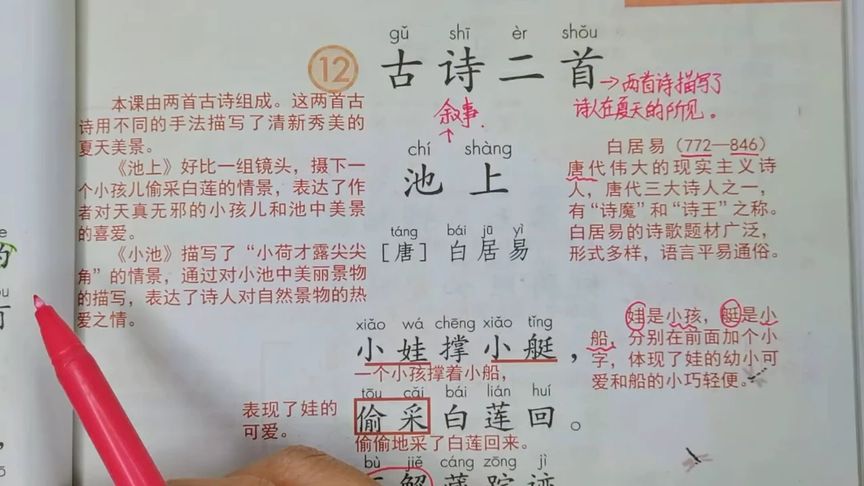 gǔ shī èr shǒu
12 古诗二首
→两首诗描写了
诗人在夏天的所见。
本课由两首古诗组成。这两首古
诗用不同的手法描写了清新秀美的
夏天美景。
《池上》好比一组镜头，摄下一
个小孩儿偷采白莲的情景，表达了作
者对天真无邪的小孩儿和池中美景
的喜爱。
《小池》描写了“小荷才露尖尖
角”的情景，通过对小池中美丽景物
的描写，表达了诗人对自然景物的热
爱之情。
叙事.
chí shàng
池上
táng bái jū yì
[唐] 白居易
白居易（772—846）
唐代伟大的现实主义诗
人，唐代三大诗人之一，
有“诗魔”和“诗王”之称。
白居易的诗歌题材广泛，
形式多样，语言平易通俗。
xiǎo wá chēng xiǎo tǐng
小娃撑小艇，
一个小孩撑着小船，
娃是小孩，艇是小
船，分别在前面加个小
字，体现了娃的幼小可
爱和船的小巧轻便。
表现了娃的
可爱。
tōu cǎi bái lián huí
偷采白莲回。
偷偷地采了白莲回来。
bù jiě cáng zōng jì
解藏踪迹